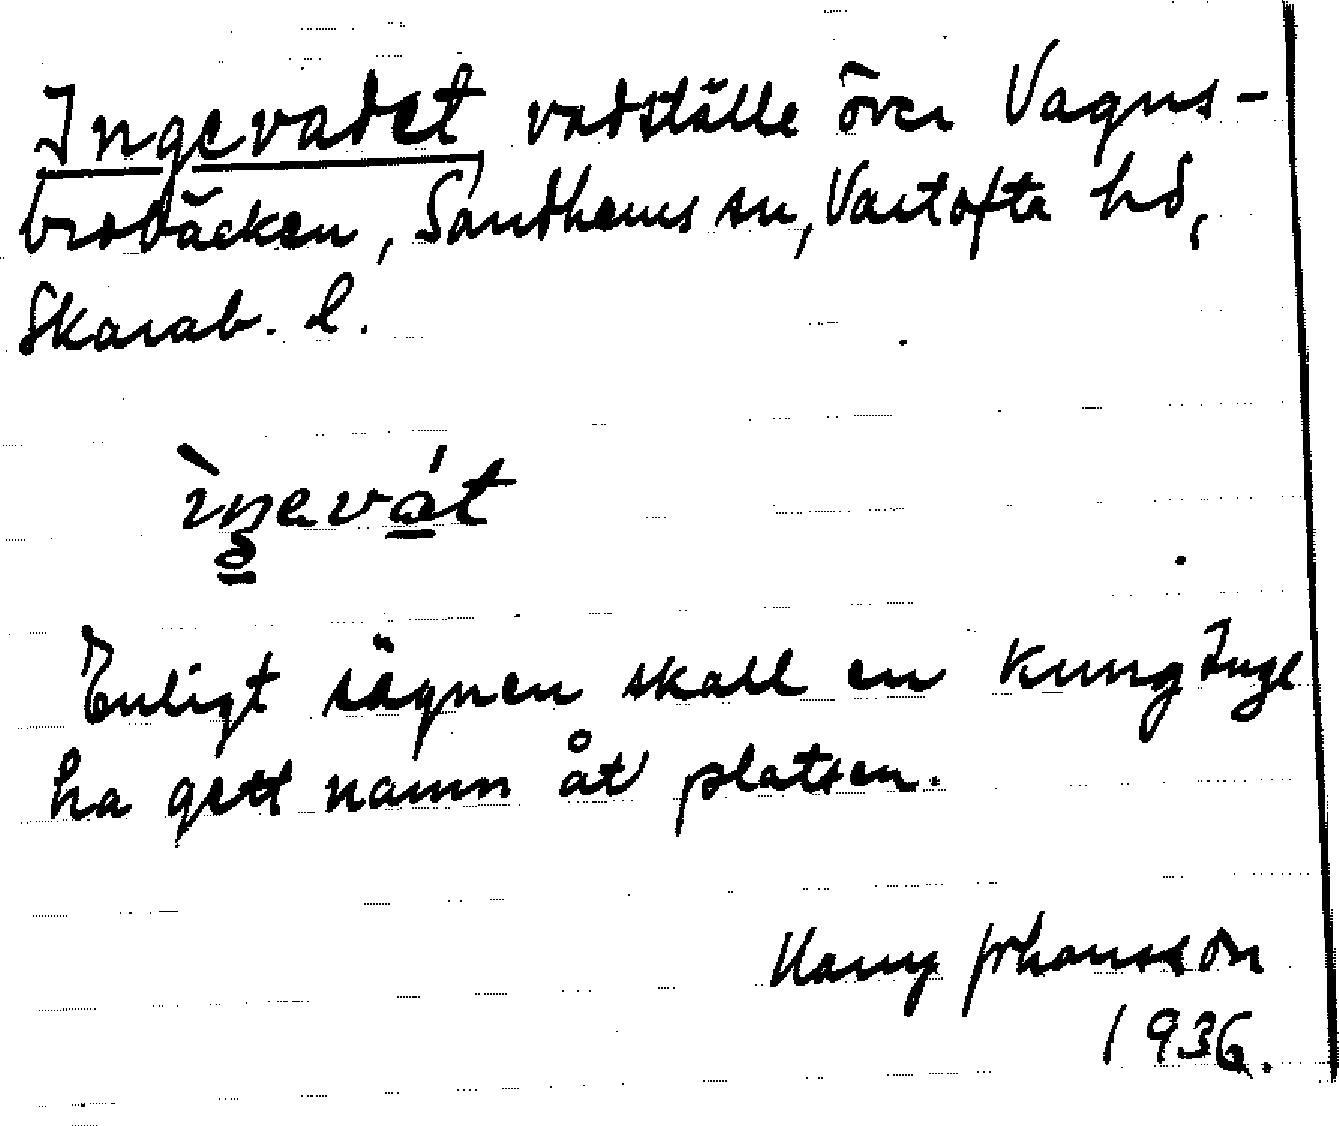 Ingevadet vadställe över Vagns-
brobäcken, Sandhems sn, Vartofta hd,
Skarab. l.
Enligt sägnen skall en kung Inge
ha gett namn åt platsen.
Harry Johansson
1936.